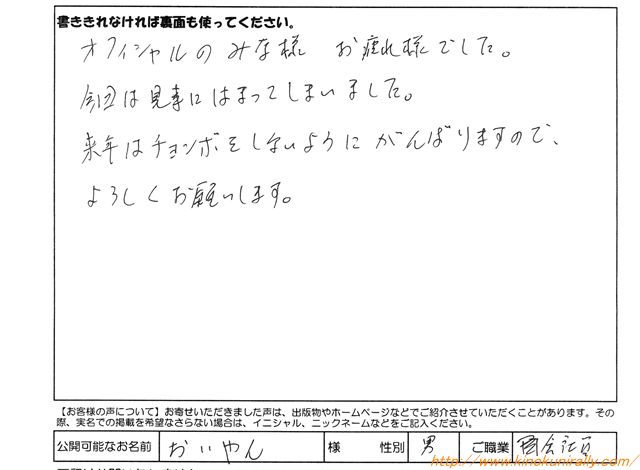 書ききれなければ裏面も使ってください。
オフィシャルのみな様 お疲れ様でした。
今回は見事にはまってしまいました。
来年はチョンボをしないようにがんばりますので、
よろしくお願いします。
【お客様の声について】お寄せいただきました声は、出版物やホームページなどでご紹介させていただくことがあります。その
際、実名での掲載を希望なさらない場合は、イニシャル、ニックネームなどをご記入ください。
公開可能なお名前 おいやん 様 性別 男 ご職業 会社員
http://www.kinokunirally.com/